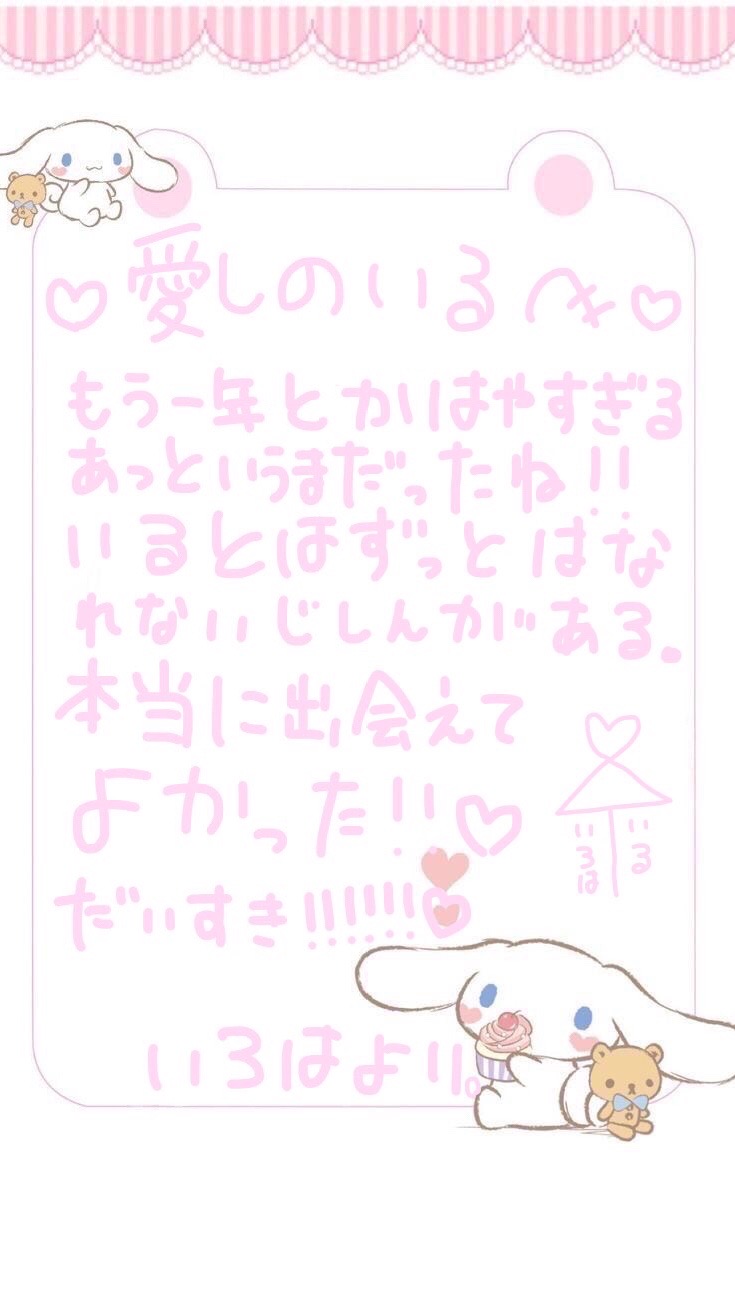 ♡愛しのいるへ♡
もう一年とかはやすぎる
あっというまだったね！！
いるとはずっとはな
れないじしんがある。
本当に出会えて
よかった！！♡
だいすき！！！！！！♡
いろは いる
いろはより。